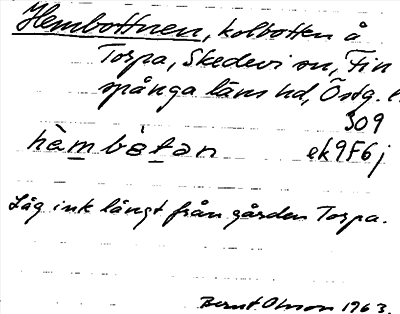 Hembottnen, kolbotten å
Torpa, Skedevi sn, Fin
spånga läns hd, Östg. l.
309
hèmbòtan ek9F6j
Låg ink långt från gården Torpa.
Bernt Olsson 1963.